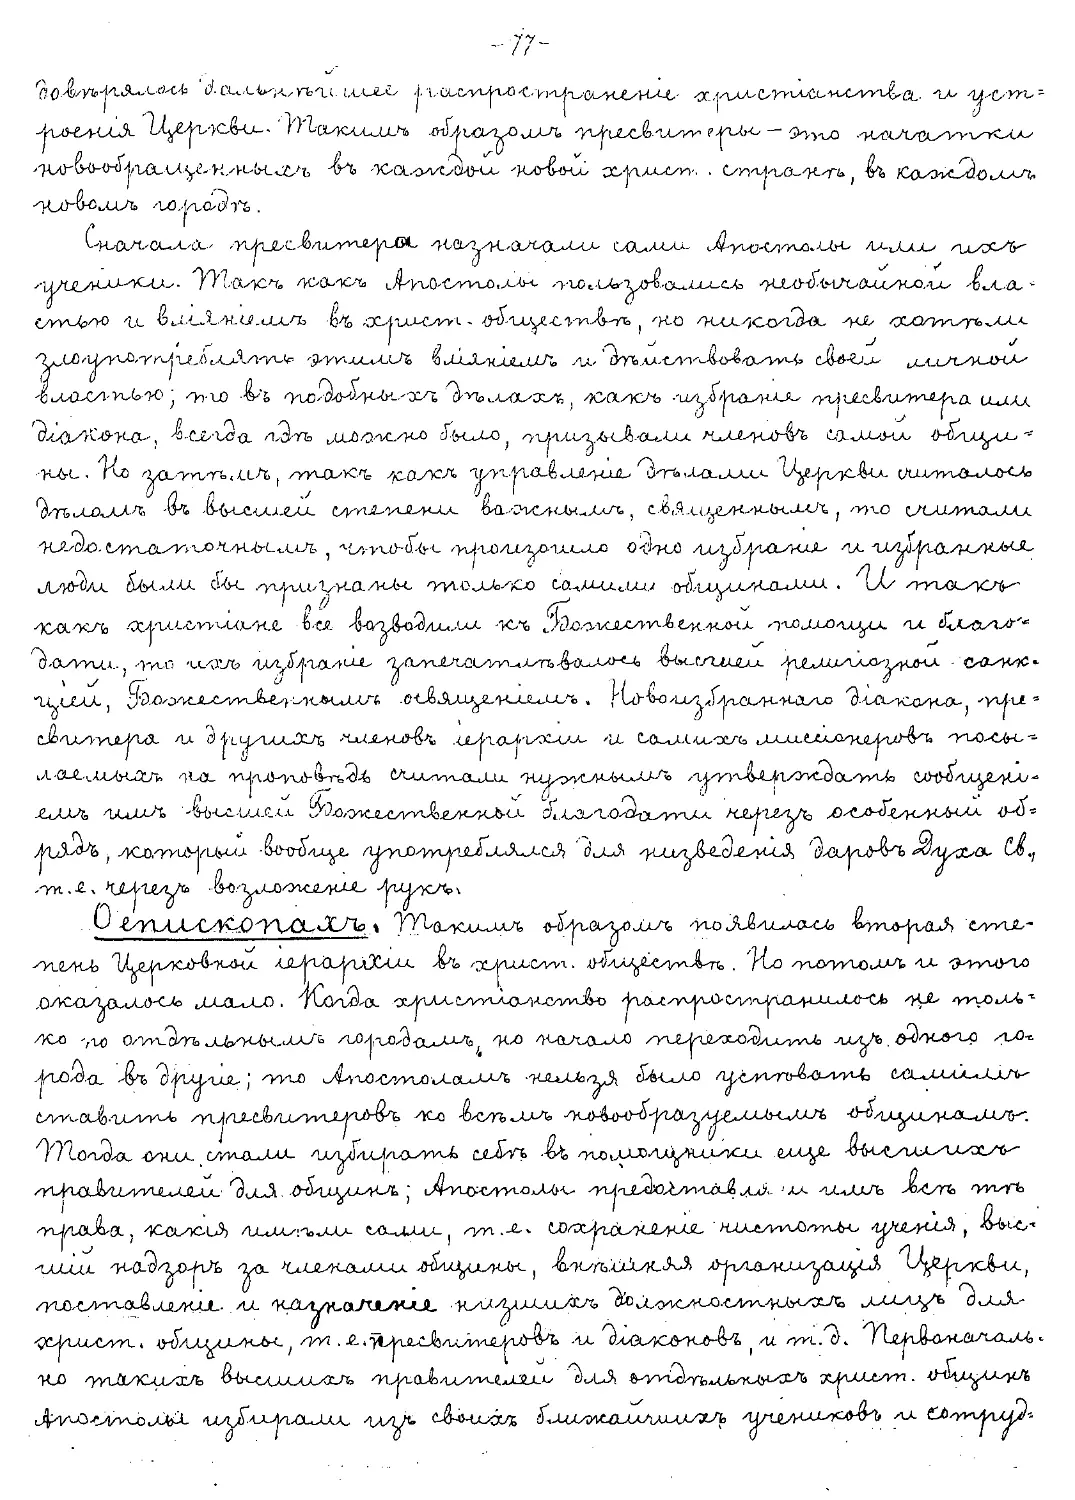 -77-
довѣрялось дальнѣйшее распространеніе христіанства и уст=
роенія Церкви. Такимъ образомъ пресвитеры — это начатки
новообращенныхъ въ каждой новой христ. странѣ, въ каждомъ
новомъ городѣ.
Сначала пресвитера назначали сами Апостолы или ихъ
ученики. Такъ какъ Апостолы пользовались необычайной вла-
стью и вліяніемъ въ христ. обществѣ, но никогда не хотѣли
злоупотреблять этимъ вліяніемъ и дѣйствовать своей личной
властью; то въ подобныхъ дѣлахъ, какъ избраніе пресвитера или
діакона, всегда гдѣ можно было, призывали членовъ самой общи=
ны. Но затѣмъ, такъ какъ управленіе дѣлами Церкви считалось
дѣломъ въ высшей степени важнымъ, священнымъ, то считали
недостаточнымъ, чтобы произошло одно избраніе и избранные
люди были бы признаны только самими общинами. И такъ
какъ христіане все возводили къ Божественной помощи и благо=
дати, то ихъ избраніе запечатлѣвалось высшей религіозной санк=
ціей, Божественнымъ освященіемъ. Новоизбраннаго діакона, пре=
свитера и другихъ членовъ іерархіи и самихъ миссіонеровъ посы=
лаемыхъ на проповѣдь считали нужнымъ утверждать сообщені-
емъ имъ высшей Божественной благодати черезъ особенный об=
рядъ, который вообще употреблялся для низведенія даровъ Духа Св.,
т.е. черезъ возложеніе рукъ.
О епископахъ. Такимъ образомъ появилась вторая сте-
пень Церковной іерархіи въ христ. обществѣ. Но потомъ и этого
оказалось мало. Когда христіанство распространилось не толь=
ко по отдѣльнымъ городамъ, но начало переходить изъ одного го=
рода въ другіе; то Апостоламъ нельзя было успѣвать самимъ
ставить пресвитеровъ ко всѣмъ новообразуемымъ общинамъ.
Тогда они стали избирать себѣ въ помощники еще высшихъ
правителей для общинъ; Апостолы предоставляли имъ всѣ тѣ
права, какія имѣли сами, т.е. сохраненіе чистоты ученія, выс=
шій надзоръ за членами общины, внѣшняя организація Церкви,
поставленіе и назначеніе низшихъ должностныхъ лицъ для
христ. общины, т.е. пресвитеровъ и діаконовъ, и т.д. Первоначаль-
но такихъ высшихъ правителей для отдѣльныхъ христ. общинъ
Апостолы избирали изъ своихъ ближайшихъ учениковъ и сотруд=